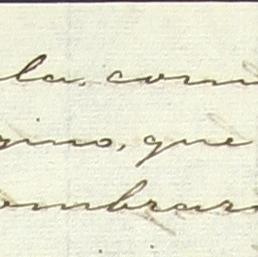 la, com
gino, que
ombrar